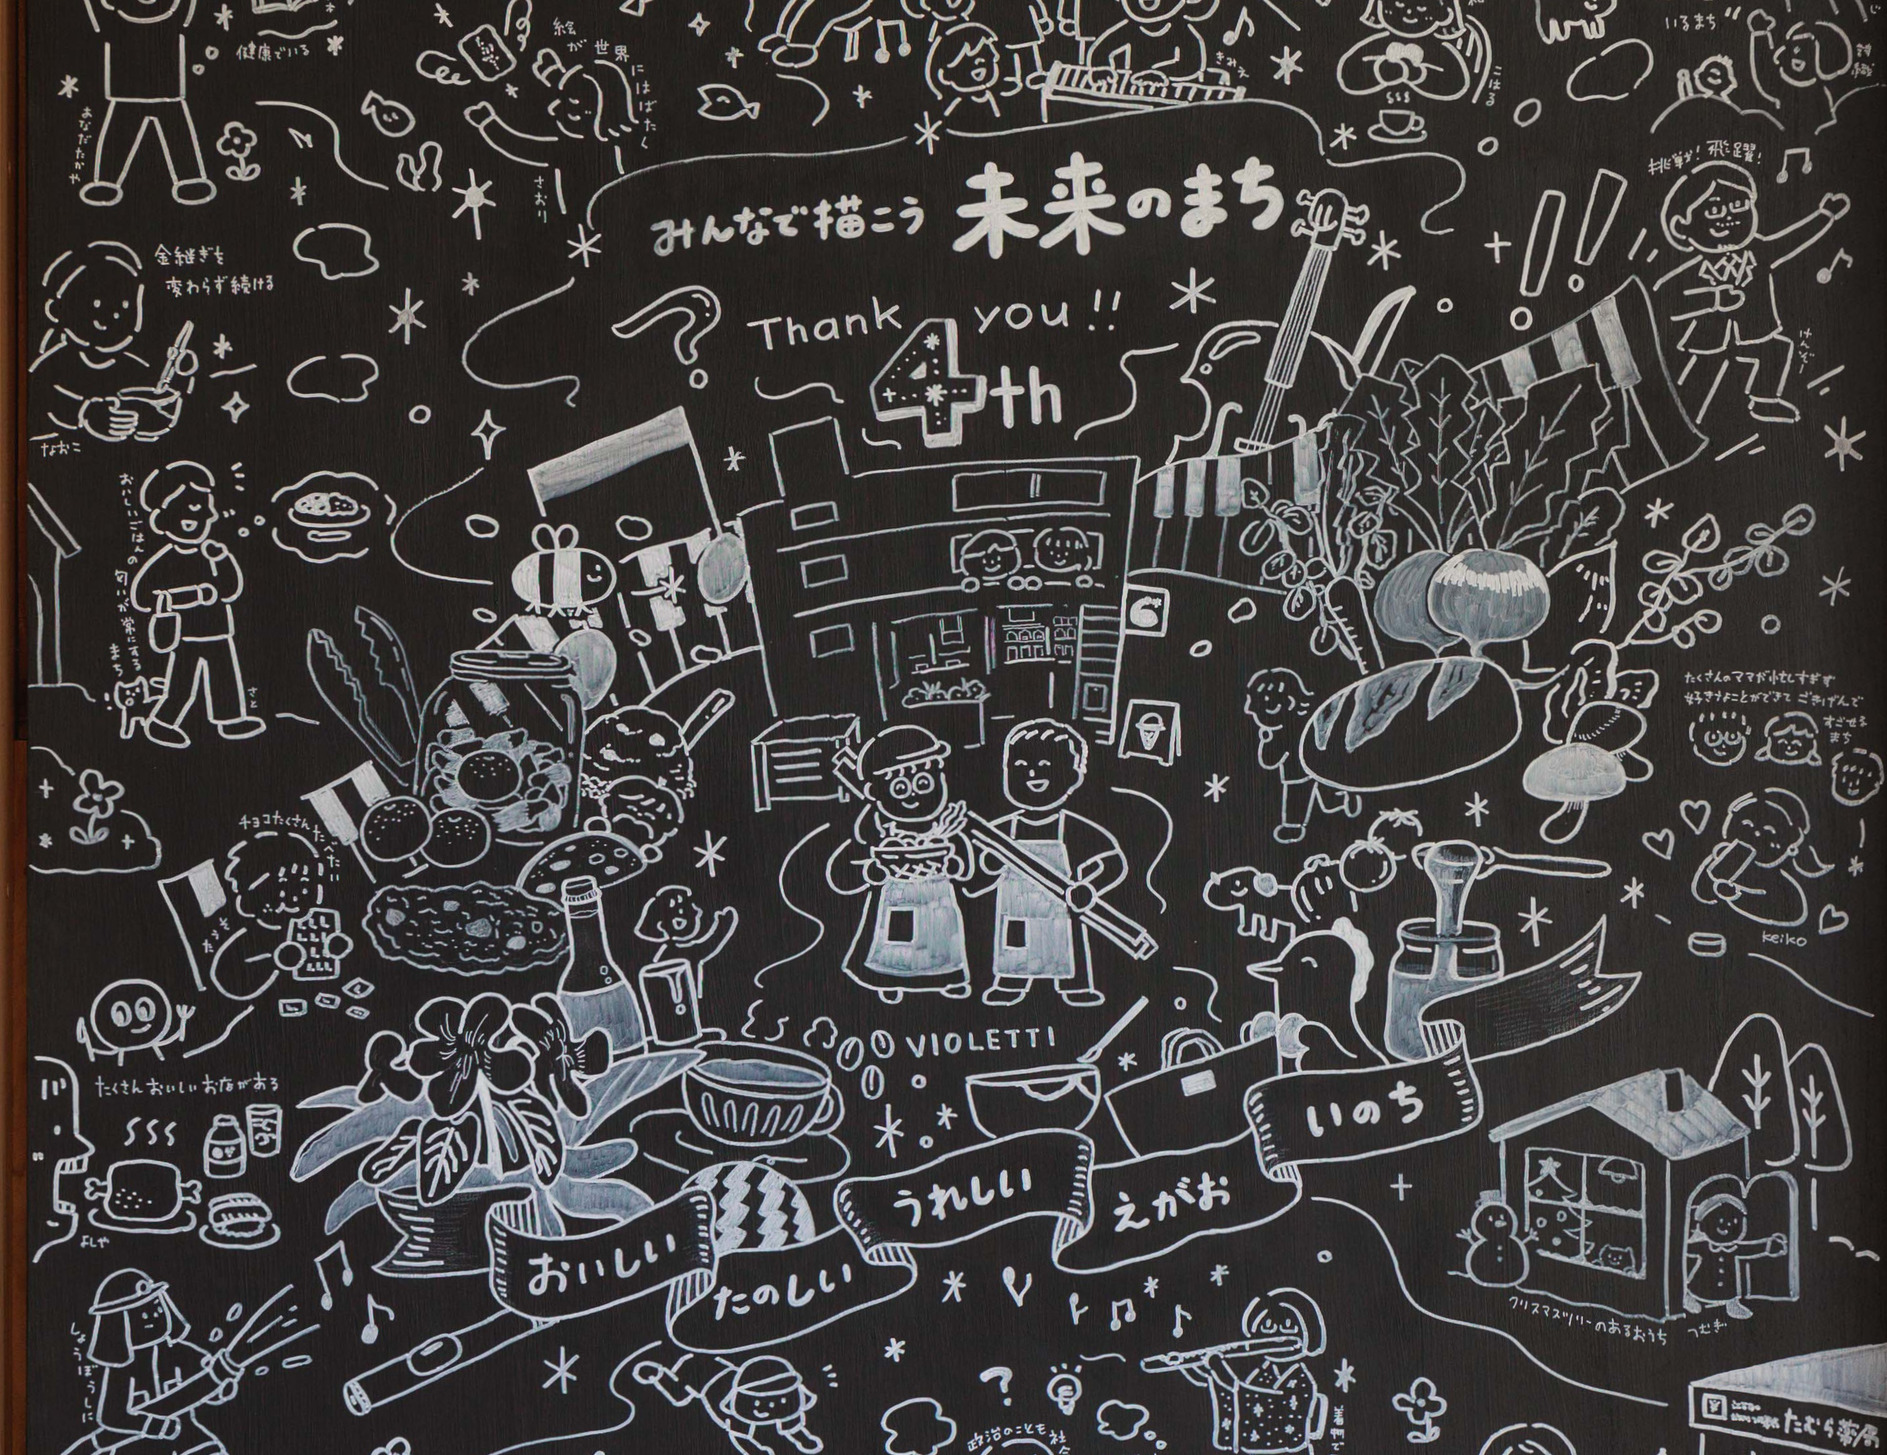 健康でいる
絵が
世界
にはばたく
さおり
きみえ
こはる
いるまち
あなだたかや
挑戦！飛躍！
けんぞー
みんなで描こう 未来のまち
Thank you!!
4th
金継ぎを
変わらず続ける
なおこ
おいしいごはんの
匂いが常にする
まち
さと
たくさんのママが忙しすぎず
好きなことができて ごきげんで
すごせる
まち
keiko
チョコたくさんたべたい
VIOLETTI
たくさんおいしいお店がある
よしや
おいしい
たのしい
うれしい
えがお
いのち
クリスマスツリーのあるおうち
つむぎ
しょうぼうしに
政治のことも
着物で
たむら薬局